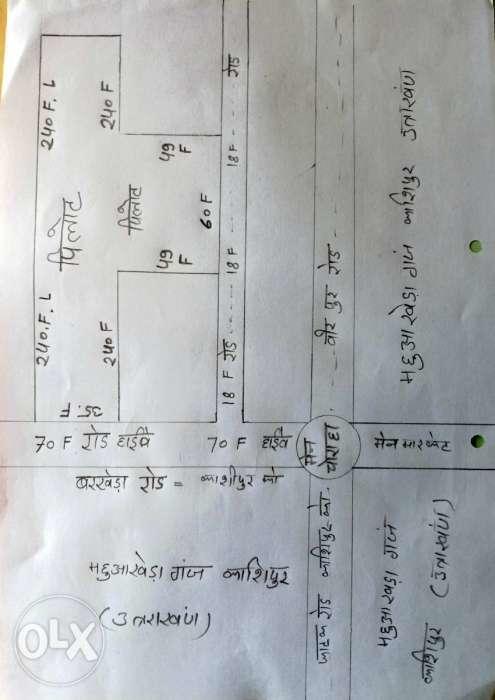 240 F. L
240 F
पिलोट
पिलोट
49 F
49 F
60 F
240. F. L
240 F
35. F
18 F रोड ..... 18 F ..... 18 F ..... रोड
वीर पुर रोड
महुआखेड़ा गंज काशिपुर उत्तराखंण
70 F रोड हाईवे
70 F हाईवे
मेन चौराहा
मेन मारकेट
बरखेड़ा रोड = काशीपुर को
महुआखेड़ा गंज काशिपुर
(उत्तराखंण)
रोड काशिपुर को
महुआखेड़ा गंज
काशिपुर (उत्तराखंण)
OLX